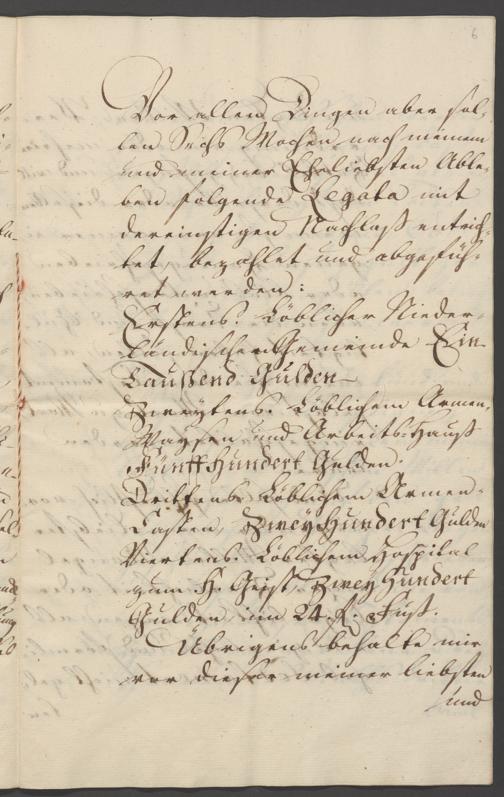 6
Vor allen Dingen aber sol-
len Sechs Wochen nach meinem
und meiner Eheliebsten Able-
ben folgende Legata mit
dereinstigen Nachlaß entrich-
tet, bezahlet und abgefüh-
ret werden:
Erstens. Löblicher Nieder-
ländischen Gemeinde Ein
Taußend Gulden
Zweytens. Löblichem Armen,
Waysen und Arbeits-Hauß
Fünff Hundert Gulden.
Drittens. Löblichem Armen-
Casten, Zwey Hundert Gulden
Viertens. Löblichem Hospital
zum H. Geist, Zwey Hundert
Gulden im 24. f. Fuß.
Übrigens behalte mir
vor dieser meiner liebsten
und